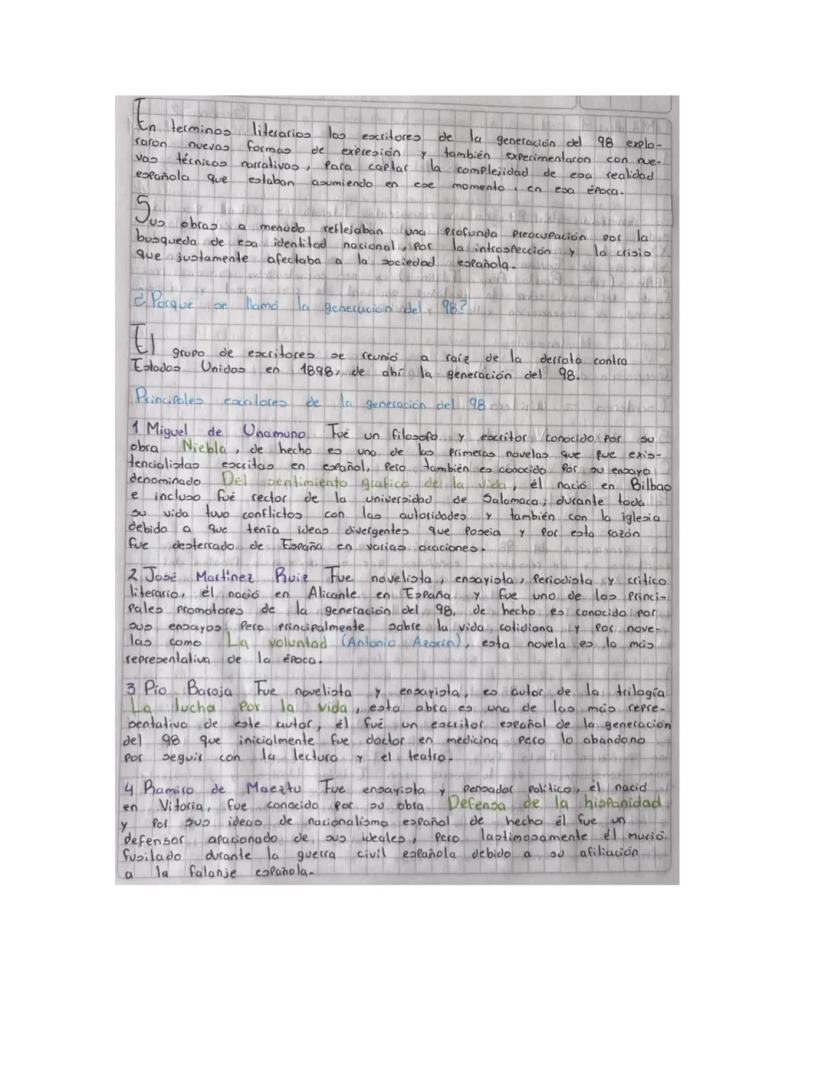 En terminos literarios los escritores de la generación del 98 explo-
raron nuevas formas de expresión y también experimentaron con nue-
vas técnicas narrativas, para captar la complejidad de esa realidad
española que estaban asumiendo en ese momento, en esa época.
Sus obras a menudo reflejaban una profunda preocupación por la
busqueda de esa identidad nacional, por la introspección y la crisis
que justamente afectaba a la sociedad española.
¿Porqué se llamó la generación del 98?
El grupo de escritores se reunió a raíz de la derrota contra
Estados Unidos en 1898, de ahí la generación del 98.
Principales escritores de la generación del 98
1 Miguel de Unamuno Fué un filosofo y escritor conocido por su
obra Niebla, de hecho es una de las primeras novelas que fue exis-
tencialistas escritas en español, pero también es conocido por su ensayo
denominado Del sentimiento grafico de la vida, él nació en Bilbao
e incluso fué rector de la universidad de Salamaca; durante toda
su vida tuvo conflictos con las autoridades y también con la iglesia
debido a que tenía ideas divergentes que poseia y por esta razón
fue desterrado de España en varias ocaciones.
2 José Martinez Ruiz Fue novelista, ensayista, periodista y critico
literario, él nació en Alicante en España y fue uno de los princi-
pales promotores de la generación del 98, de hecho es conocido por
sus ensayos pero principalmente sobre la vida cotidiana y por nove-
las como La voluntad (Antonio Azorín), esta novela es la más
representativa de la época.
3 Pío Baroja Fue novelista y ensayista, es autor de la trilogía
La lucha por la vida, esta obra es una de las más repre-
sentativo de este autor, él fué un escritor español de la generación
del 98 que inicialmente fue doctor en medicina pero lo abandono
por seguir con la lectura y el teatro.
4 Ramiro de Maeztu Fue ensayista y pensador político, él nació
en Vitoria, fue conocido por su obra Defensa de la hispanidad
y por sus ideas de nacionalismo español de hecho él fue un
defensor apasionado de sus ideales, pero lastimosamente él murió
fusilado durante la guerra civil española debido a su afiliación
a la falanje española.